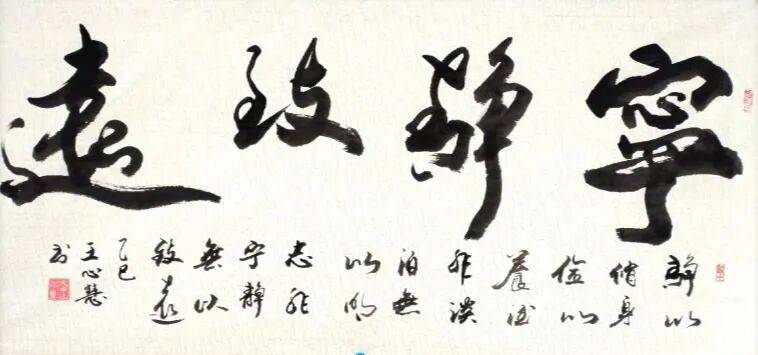 寧靜致遠
靜以
修身
儉以
養德
非淡
泊無
以明
志非
宁靜
無以
致遠
乙巳
王心慧
书